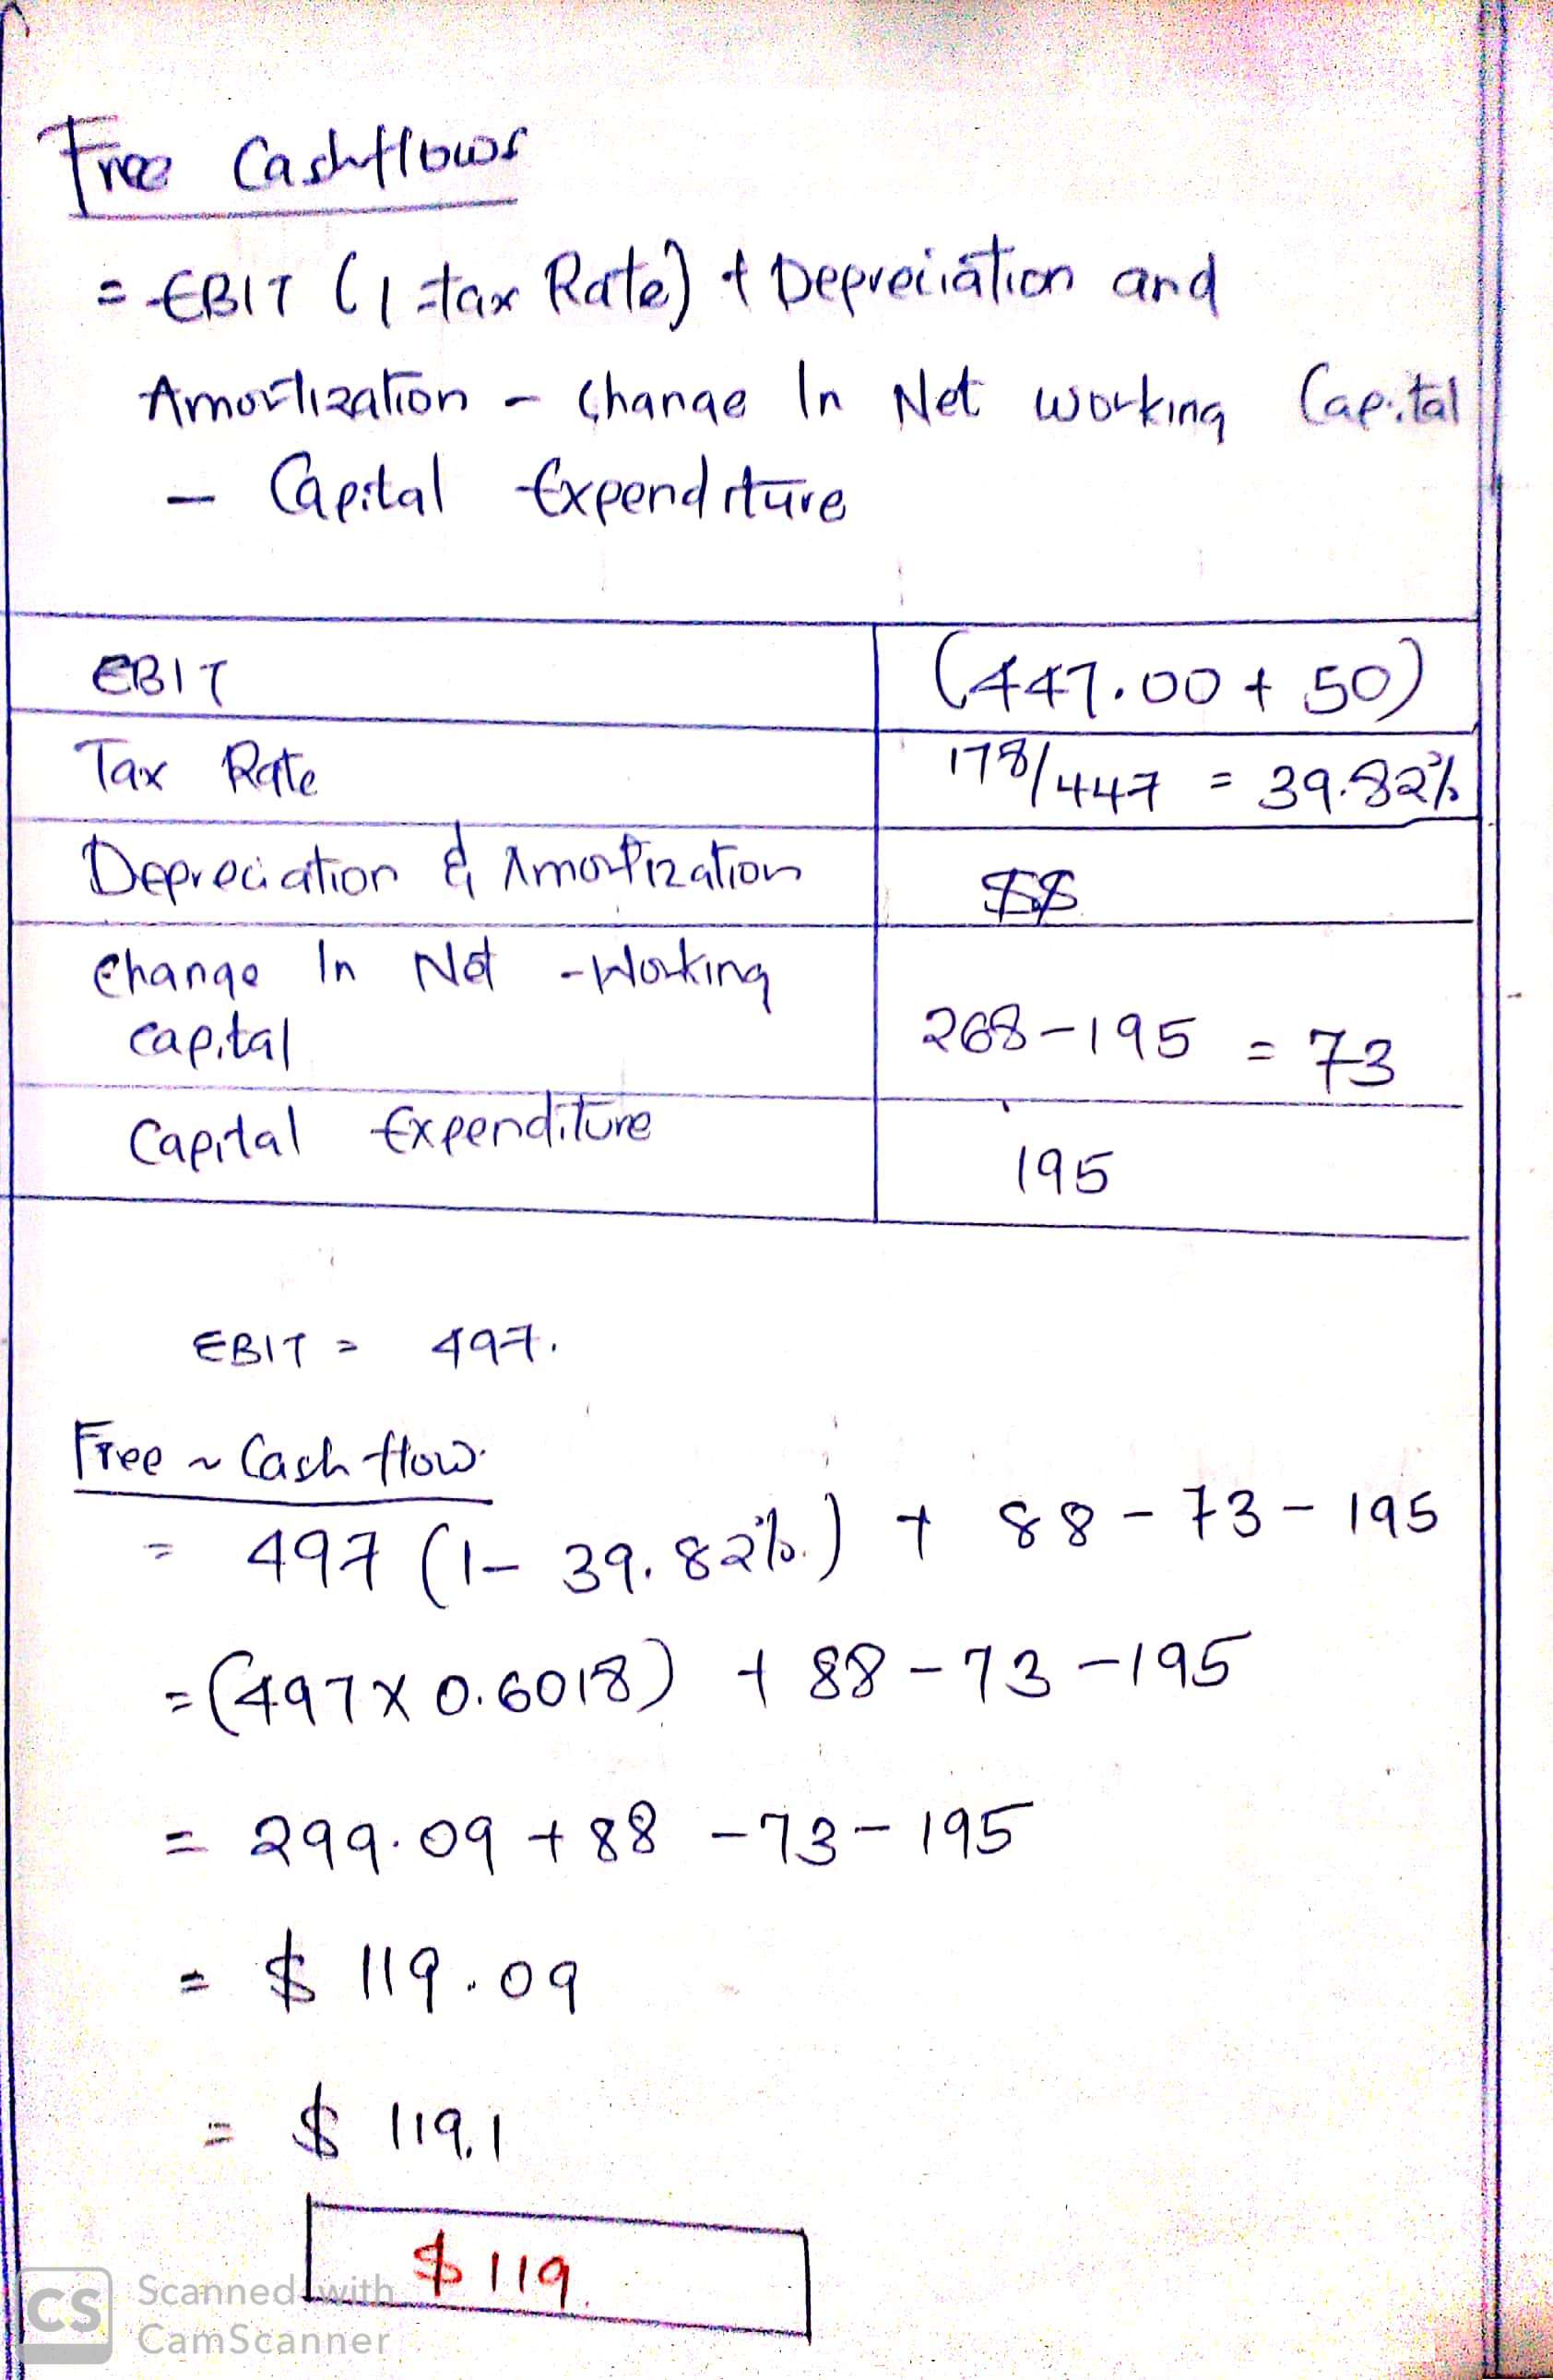 Free Cashflows
= EBIT (1 - tax Rate) + Depreciation and
Amortization - Change In Net working Capital
- Capital Expenditure
EBIT (447.00 + 50)
Tax Rate 178/447 = 39.82%
Depreciation & Amortization 88
Change In Net - Working
capital 268-195 = 73
Capital Expenditure 195
EBIT = 497.
Free ~ Cash flow.
= 497 (1- 39.82%.) + 88 - 73 - 195
= (497 X 0.6018) + 88 - 73 - 195
= 299.09 + 88 - 73 - 195
= $ 119.09
= $ 119.1
$ 119.
CS Scanned with
CamScanner